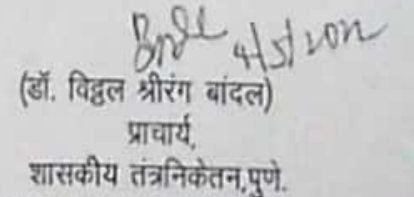 4/5/2022
(डॉ. विठ्ठल श्रीरंग बांदल)
प्राचार्य,
शासकीय तंत्रनिकेतन,पुणे.